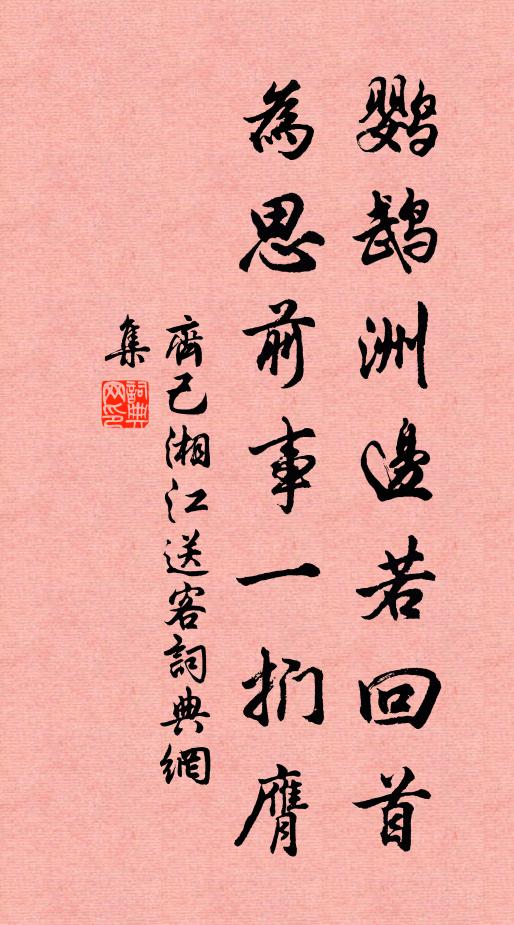 鹦鹉洲邊若回首
為思前事一捫膺
齊己湘江送客詞典網
集
詞典网印